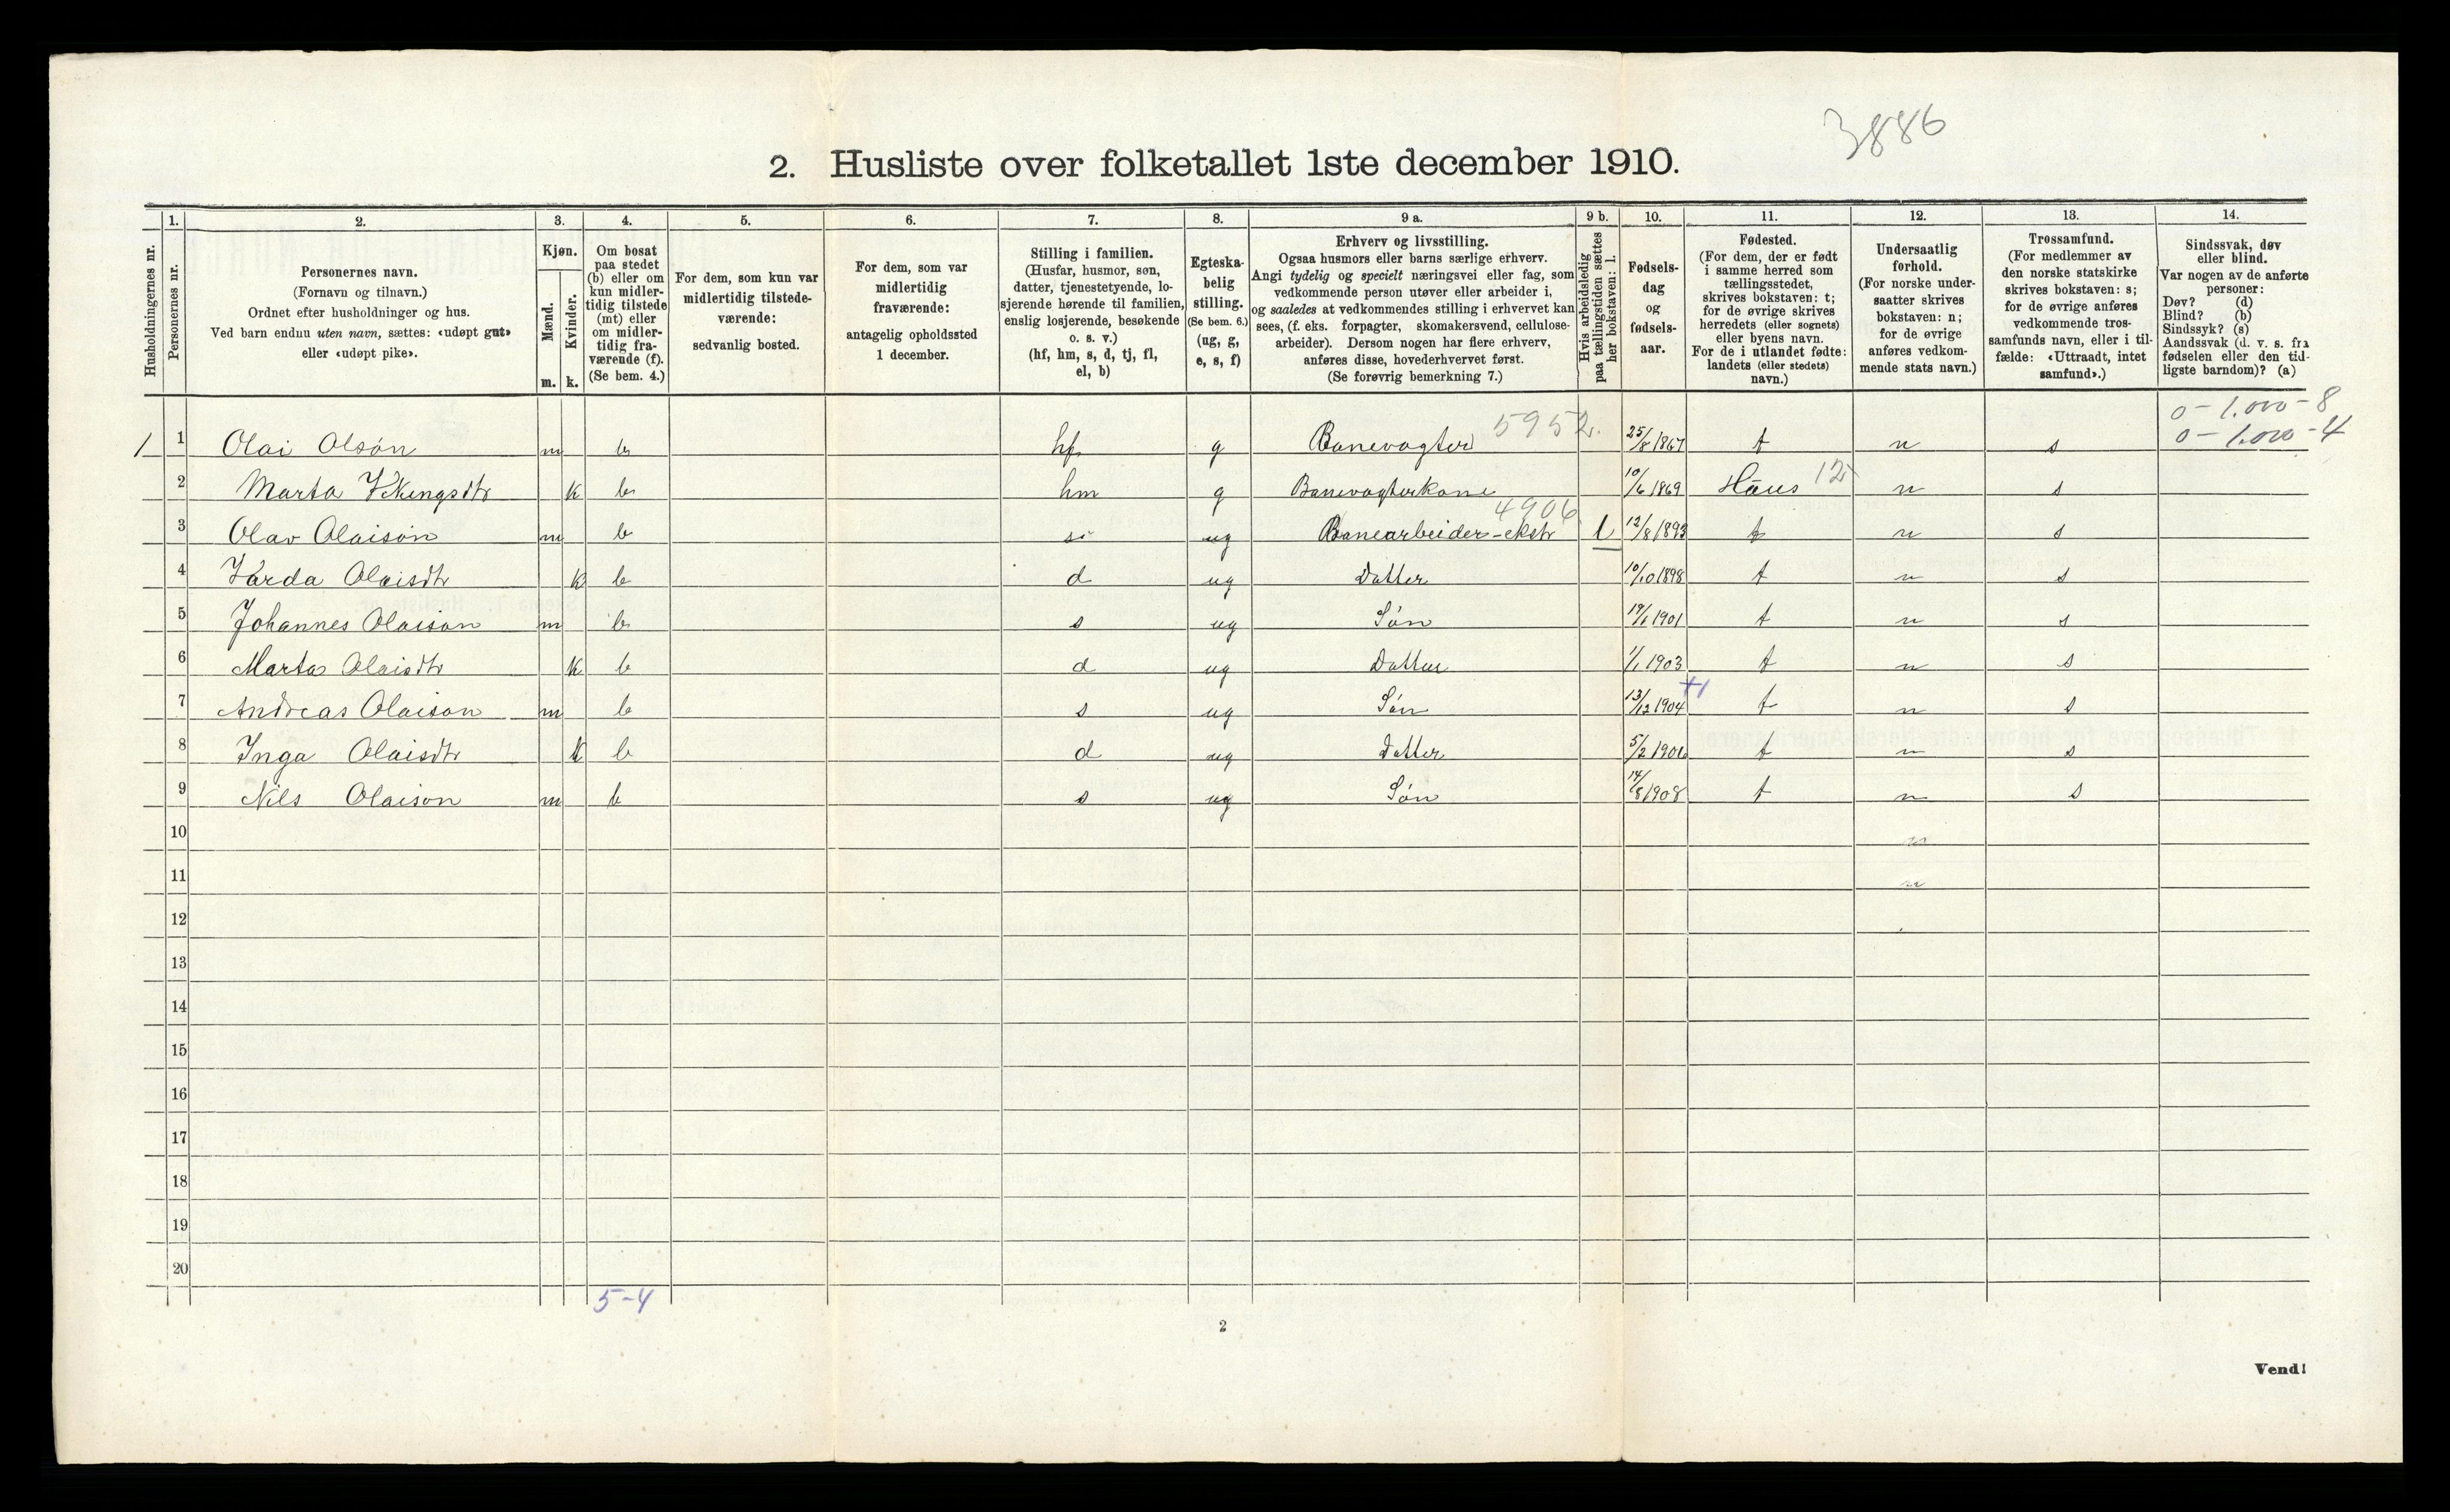 3886
2. Husliste over folketallet 1ste december 1910.
Husholdningernes nr.
1. 2. 3. 4. 5. 6. 7. 8. 9 a. 9 b. 10. 11. 12. 13. 14.
Personernes nr.
Personernes navn.
(Fornavn og tilnavn.)
Ordnet efter husholdninger og hus.
Ved barn endnu uten navn, sættes: «udøpt gut»
eller «udøpt pike».
Kjøn.
Mænd.
Kvinder.
m. k.
Om bosat
paa stedet
(b) eller om
kun midler-
tidig tilstede
(mt) eller
om midler-
tidig fra-
værende (f).
(Se bem. 4.)
For dem, som kun var
midlertidig tilstede-
værende:
sedvanlig bosted.
For dem, som var
midlertidig
fraværende:
antagelig opholdssted
1 december.
Stilling i familien.
(Husfar, husmor, søn,
datter, tjenestetyende, lo-
sjerende hørende til familien,
enslig losjerende, besøkende
o. s. v.)
(hf, hm, s, d, tj, fl,
el, b)
Egteska-
belig
stilling.
(Se bem. 6.)
(ug, g,
e, s, f)
Erhverv og livsstilling.
Ogsaa husmors eller barns særlige erhverv.
Angi tydelig og specielt næringsvei eller fag, som
vedkommende person utøver eller arbeider i,
og saaledes at vedkommendes stilling i erhvervet kan
sees, (f. eks. forpagter, skomakersvend, cellulose-
arbeider). Dersom nogen har flere erhverv,
anføres disse, hovederhvervet først.
(Se forøvrig bemerkning 7.)
Hvis arbeidsledig
paa tællingstiden sættes
her bokstaven: l.
Fødsels-
dag
og
fødsels-
aar.
Fødested.
(For dem, der er født
i samme herred som
tællingsstedet,
skrives bokstaven: t;
for de øvrige skrives
herredets (eller sognets)
eller byens navn.
For de i utlandet fødte:
landets (eller stedets)
navn.)
Undersaatlig
forhold.
(For norske under-
saatter skrives
bokstaven: n;
for de øvrige
anføres vedkom-
mende stats navn.)
Trossamfund.
(For medlemmer av
den norske statskirke
skrives bokstaven: s;
for de øvrige anføres
vedkommende tros-
samfunds navn, eller i til-
fælde: «Uttraadt, intet
samfund».)
Sindssvak, døv
eller blind.
Var nogen av de anførte
personer:
Døv? (d)
Blind? (b)
Sindssyk? (s)
Aandssvak (d. v. s. fra
fødselen eller den tid-
ligste barndom)? (a)
0-1.000-8
0-1.000-4
1 1 Olai Olsón m b hf g Banevogter 5952. 25/8 1867 t n s
2 Marta k b hm g Banevogterkone 10/6 1869 Haus 12 n s
3 Olav Olaisón m b s ug Banearbeider-ekstr 4906 l 12/8 1893 t n s
4 Olaisdtr k b d ug Datter 10/10 1898 t n s
5 Johannes Olaison m b s ug Són 1901 t n s
6 Marta Olaisdtr k b d ug Datter 1/1 1903 t n s
7 Andreas Olaison m b s ug Són 13/12 1904 t n s
8 Inga Olaisdtr k b d ug Datter 5/2 1906 t n s
9 Nils Olaison m b s ug Són 14/8 1908 t n s
10 n
11 n
12
13
14
15
16
17
18
19
20
5-4
2
Vend!